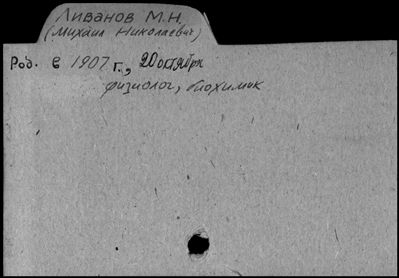 Ливанов М.Н.
(Михаил Николаевич)
Род. в 1907 г., 20 октября
физиолог, биохимик